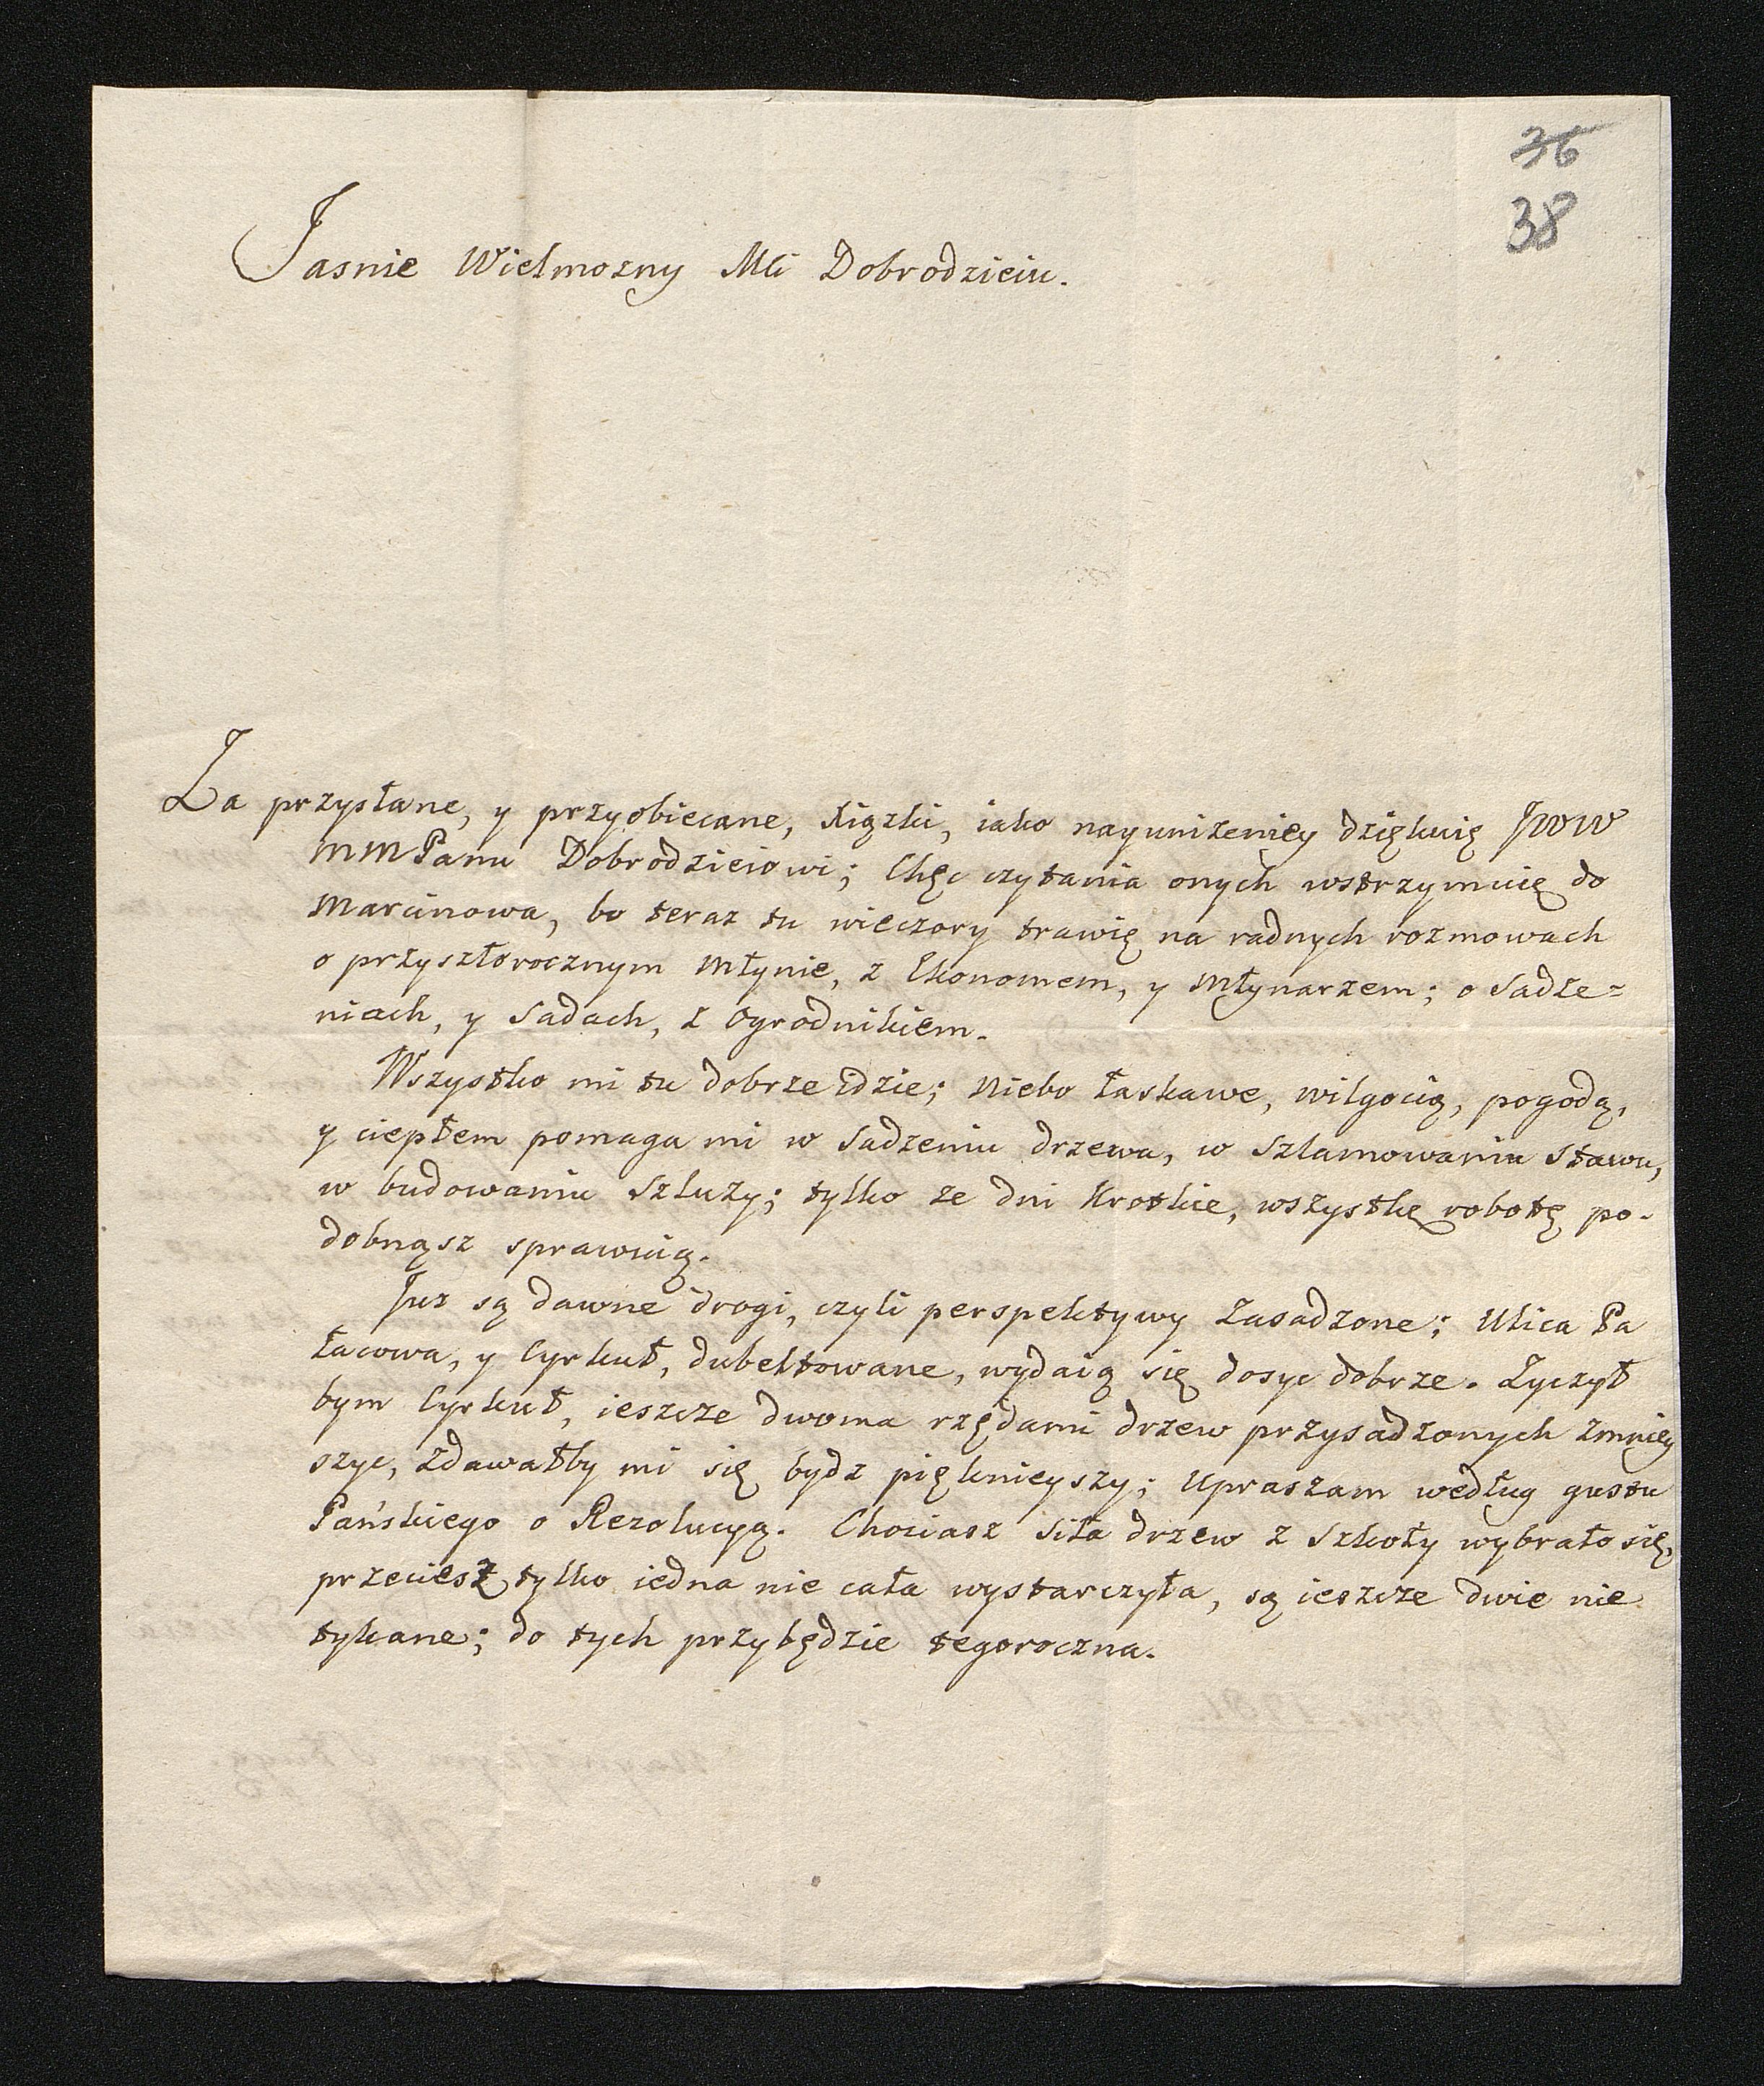 36
38
Jasnie Wielmozny Mći Dobrodzieiu.
Za przysłane, y przyobiecane, Xiązki, iako nayunizeniey dziękuię JWW
MMPanu Dobrodzieiowi; Chęc czytania onych wstrzymuię do
Marcinowa, bo teraz tu wieczory trawię na radnych rozmowach
o przyszłorocznym Młynie, z Ekonomem, y Młynarzem; o Sadze=
niach, y Sadach, z Ogrodnikiem.
Wszystko mi tu dobrze idzie; Niebo łaskawe, wilgocią, pogodą,
y ciepłem pomaga mi w Sadzeniu drzewa, w Szlamowaniu Stawu,
w budowaniu Szluzy; tylko ze dni Krotkie, wszystkę robotę po-
dobnąsz sprawuią.
Juz są dawne drogi, czyli perspektywy Zasadzone; Ulica Pa
łacowa, y Cyrkuł, dubeltowane, wydaią się dosyc dobrze. Zyczył
bym Cyrkuł, ieszcze dwoma rzędami drzew przysadzonych Zmniey
szyc, Zdawałby mi się bydz pięknieyszy; Upraszam według gustu
Pańskiego o Rezolucyą. Chociasz siła drzew z Szkoły wybrało się,
przeciesz tylko iedna nie cała wystarczyła, są ieszcze dwie nie
tykane; do tych przybędzie tegoroczna.